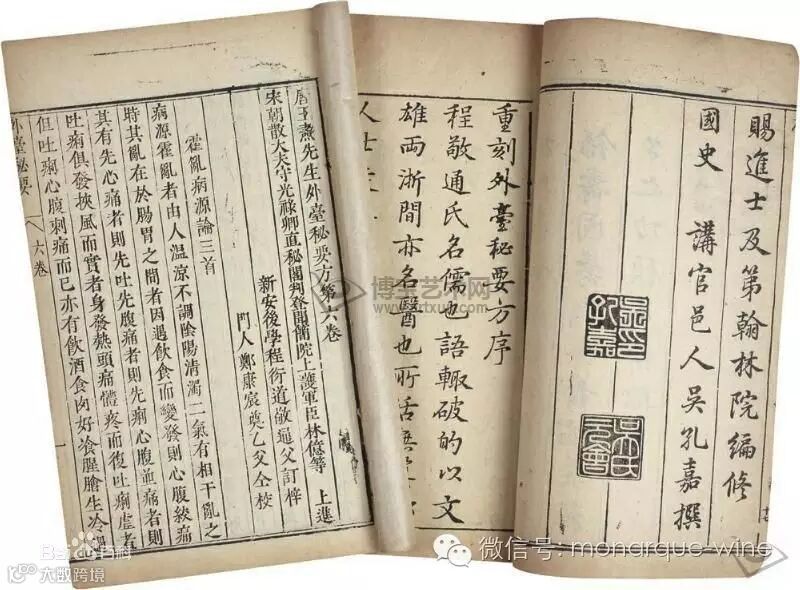 賜進士及第翰林院編修
國史 講官邑人吳孔嘉撰
重刻外臺祕要方序
程敬通氏名儒也語輙破的以文
雄兩浙間亦名醫也所活
人士
唐王燾先生外臺秘要方第六卷
宋朝散大夫守光祿卿直秘閣判登聞簡院上護軍臣林億等 上進
新安後學程衍道敬通父訂梓
門人鄭康宸奠乙父仝校
霍亂病源論三首
病源霍亂者由人温涼不調陰陽清濁二氣有相干亂之
時其亂在於腸胃之間者因遇飲食而變發則心腹絞痛
其有先心痛者則先吐先腹痛者則先痢心腹並痛者則
吐痢俱發挾風而實者身發熱頭痛體疼而復吐痢虛者
但吐痢心腹刺痛而已亦有飲酒食肉好飡腥膾生冷
外臺秘要 六卷 一
Baidu百科
大数跨境
微信号: monarque-wine